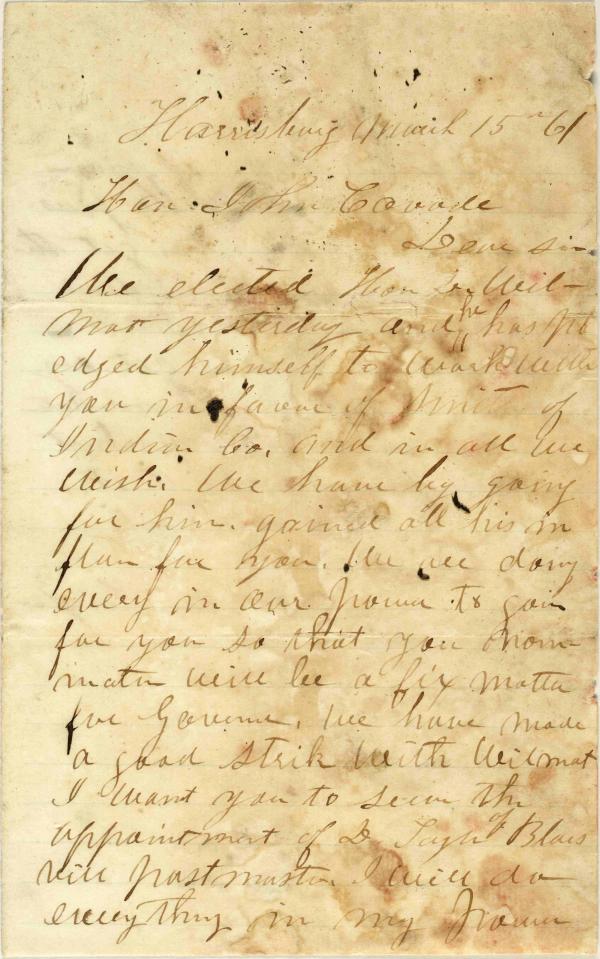 Harrisburg March 15th 61
Hon. John Covode
Dear sir
We elected Hon D. Wil-
mot yesterday and he has pl
edged himself to work with
you in favor of Smith of
Indina Co. and in all we
wish. We have by going
for him. gained all his in
flun for you. We are doing
every in our power to gain
for you so that you nom-
mater will be a fix matter
for Govenor. We have made
a good strik with Wilmot
I want you to secur the
appointment of D Taylor of Blars
vill postmaster I will do
everything in my power